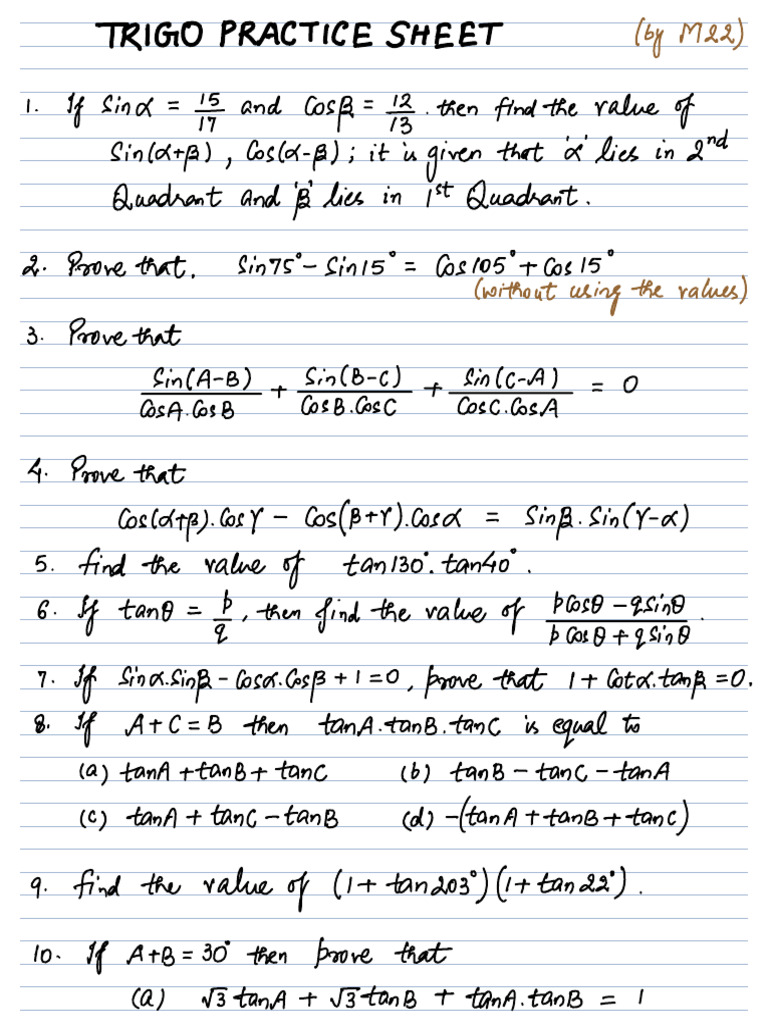 TRIGO PRACTICE SHEET (by M22)
1. If Sinα = 15/17 and Cosβ = 12/13. then find the value of
Sin(α+β), Cos(α-β); it is given that 'α' lies in 2nd
Quadrant and 'β' lies in 1st Quadrant.
2. Prove that. Sin75° - Sin15° = Cos105° + Cos15°
(without using the values)
3. Prove that
Sin(A-B)/CosA.CosB + Sin(B-C)/CosB.CosC + Sin(C-A)/CosC.CosA = 0
4. Prove that
Cos(α+β).Cosγ - Cos(β+γ).Cosα = Sinβ.Sin(γ-α)
5. find the value of tan130°.tan40°.
6. If tanθ = p/q, then find the value of pCosθ - qSinθ/pCosθ + qSinθ.
7. If Sinα.Sinβ - Cosα.Cosβ + 1 = 0, prove that 1 + Cotα.tanβ = 0.
8. If A+C = B then tanA.tanB.tanC is equal to
(a) tanA + tanB + tanC (b) tanB - tanC - tanA
(c) tanA + tanC - tanB (d) -(tanA + tanB + tanC)
9. find the value of (1 + tan203°)(1 + tan22°).
10. If A+B = 30° then prove that
(a) √3 tanA + √3 tanB + tanA.tanB = 1